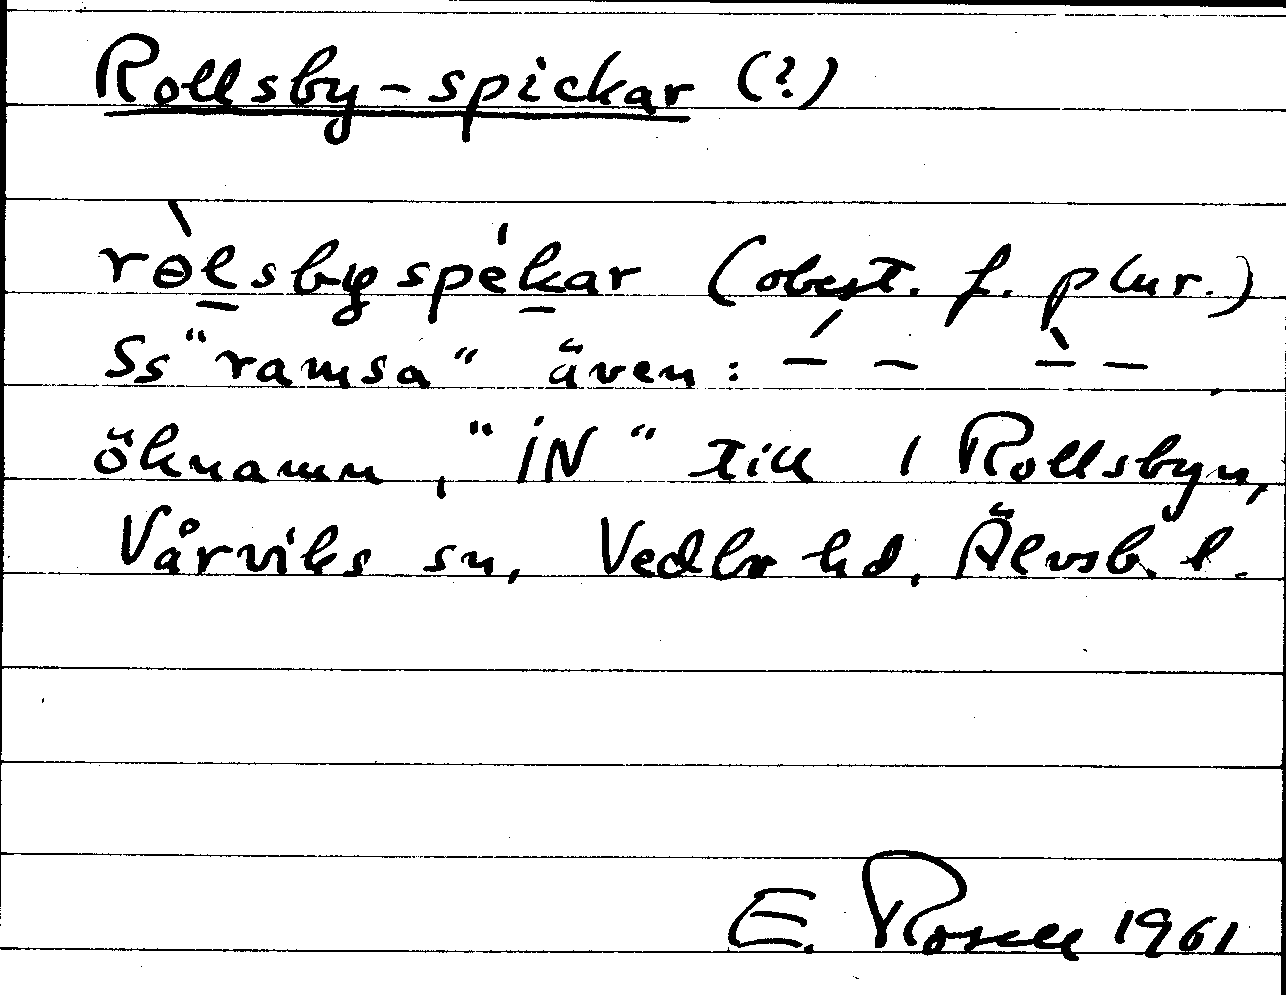 Rollsby-spickar (?)
rɵ̀l̲sbyspék̲ar (obest. f. plur.)
Ss "ramsa" även: –́ – –̀ –,
öknamn, "IN" till 1 Rollsbyn,
Vårviks sn, Vedbo hd, Älvsb. l.
E. Rosell 1961